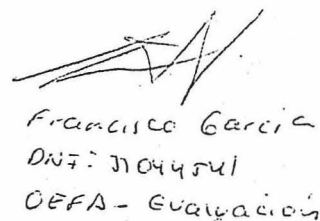 Francisco Garcia
DNI:
OEFA - Evaluación